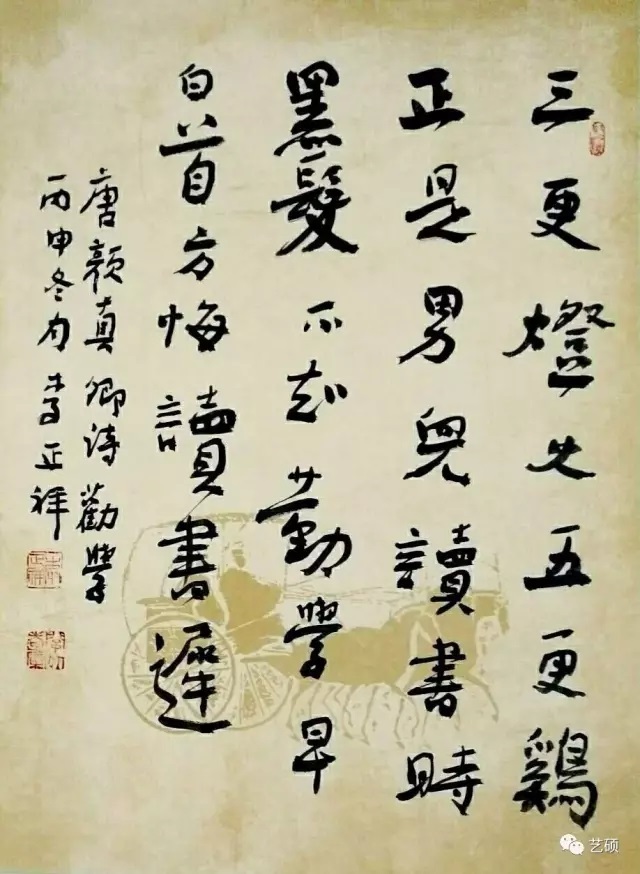 三更燈火五更鷄
正是男兒讀書時
黑髮不知勤學早
白首方悔讀書遲
唐顏真卿詩勸學
丙申冬月李正祥
艺硕